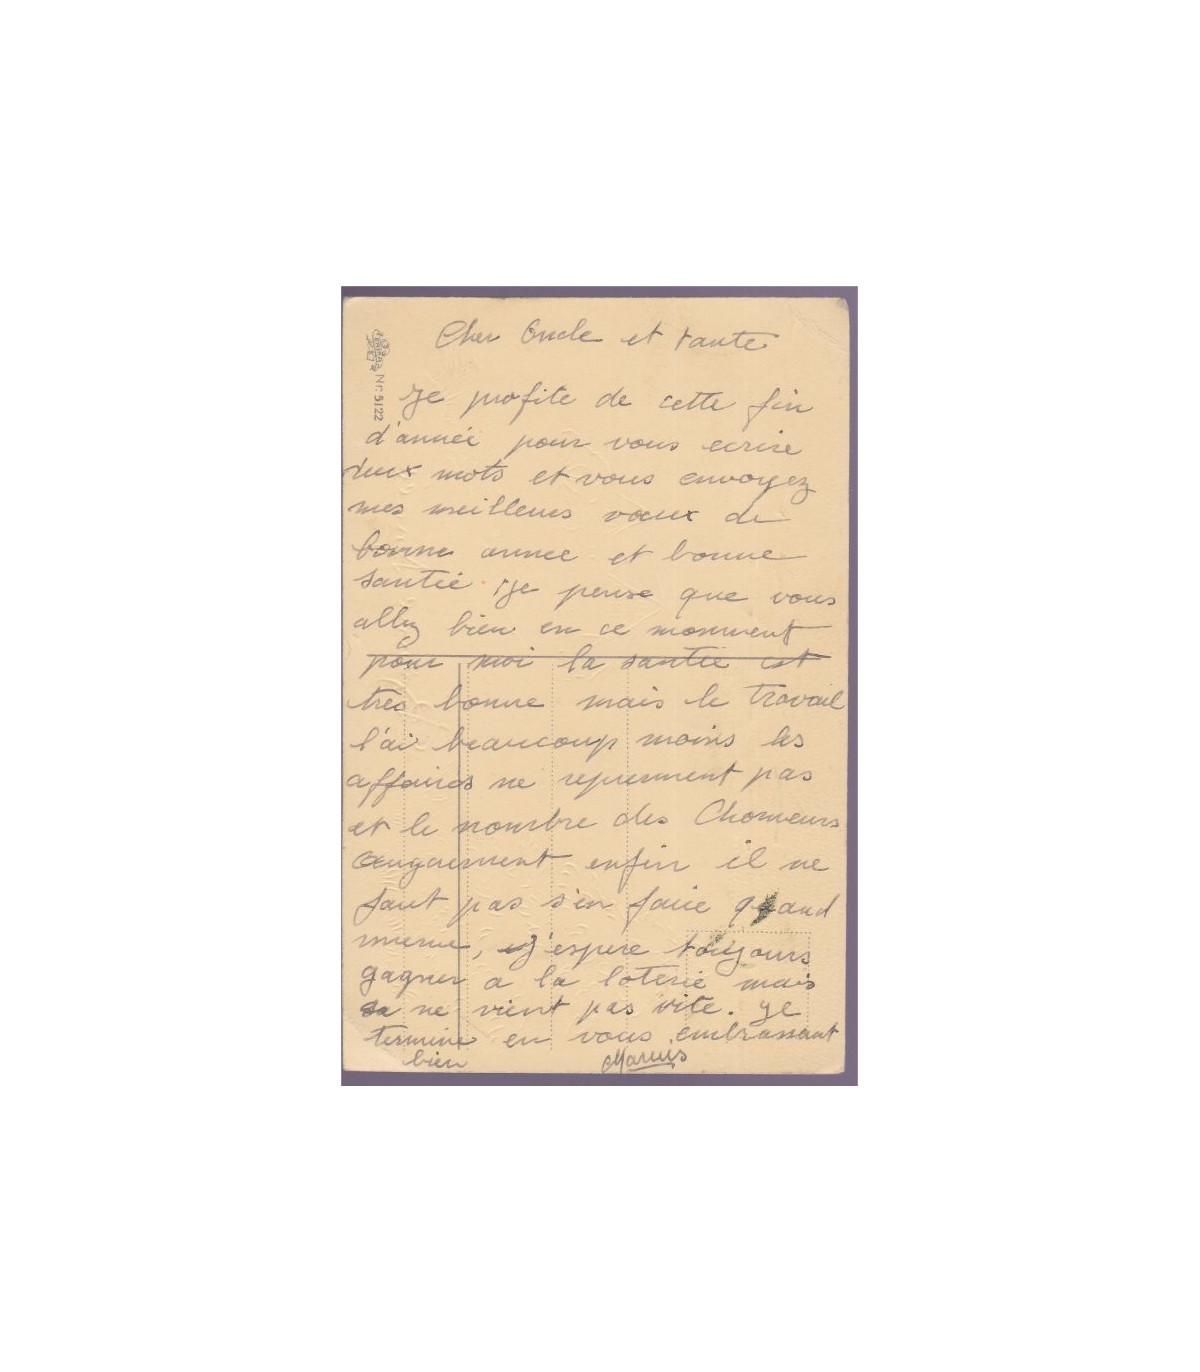 Cher Oncle et tante
Nr. 5122
Je profite de cette fin
d'année pour vous ecrire
deux mots et vous envoyez
mes meilleurs vœux de
bonne annee et bonne
santée Je pense que vous
allez bien en ce monment
pour moi la santée est
tres bonne mais le travail
l'ai beaucoup moins les
affaires ne reprennent pas
et le nombre des Chomeurs
augmentent enfin il ne
faut pas s'en faire quand
meme, J'espere toujours
gagner a la loterie mais
sa ne vient pas vite. Je
termine en vous embrassant
bien Marius